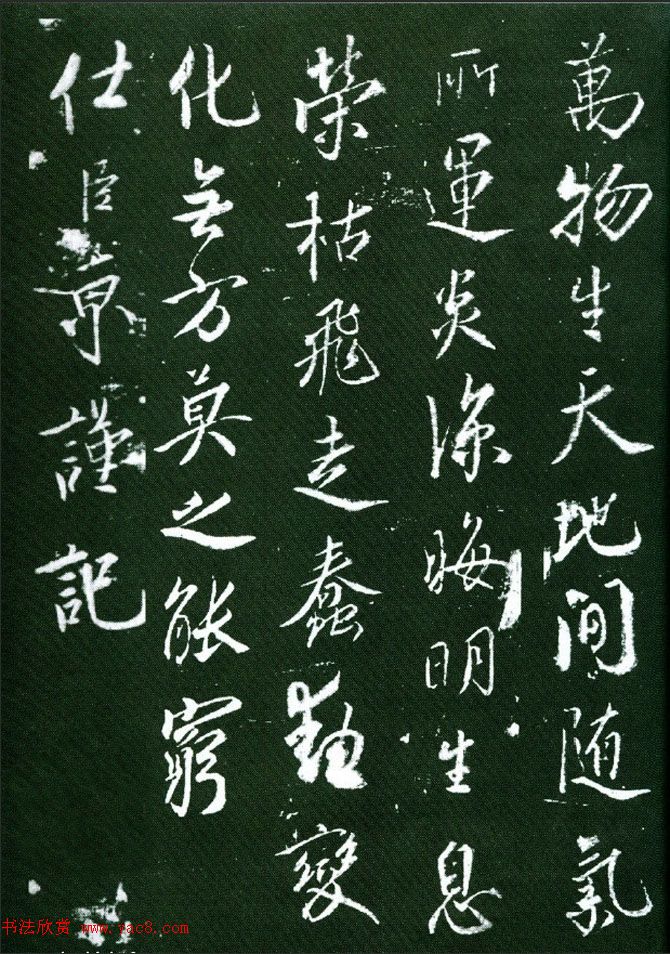 萬物生天地間随氣
所運炎涼晦明生息
榮枯飛走蠢動變
化無方莫之能窮
仕臣京謹記
书法欣赏 www.yac8.com